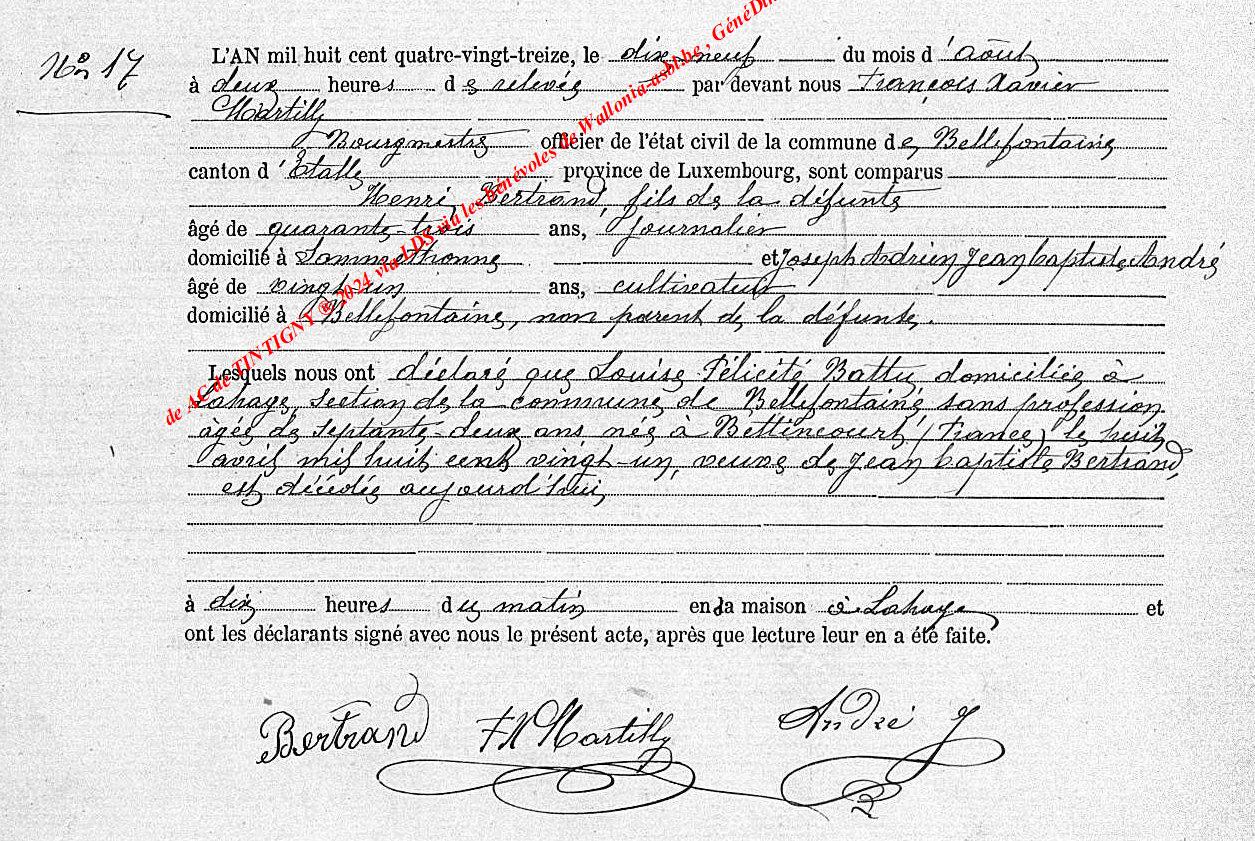 No 17
L'AN mil huit cent quatre-vingt-treize, le dix-neuf du mois d'août
à deux heures de relevée par devant nous François Xavier
Martilly
Bourgmestre officier de l'état civil de la commune de Bellefontaine
canton d'Etalle province de Luxembourg, sont comparus
Henri Bertrand, fils de la défunte
âgé de quarante-trois ans, journalier
domicilié à Sommethonne et Joseph Adrien Jean baptiste André
âgé de vingt-un ans, cultivateur
domicilié à Bellefontaine, non parent de la défunte.
Lesquels nous ont déclaré que Louise Félicité Battu, domiciliée à
Lahage, section de la commune de Bellefontaine, sans profession
âgée de septante-deux ans née à Bettincourt (France) le huit
avril mil huit cent vingt-un, veuve de Jean baptiste Bertrand,
est décédée aujourd'hui,
à dix heures du matin en sa maison à Lahage et
ont les déclarants signé avec nous le présent acte, après que lecture leur en a été faite.
Bertrand FX Martilly André J
de AC de TINTIGNY ® 2024 via LDS via les bénévoles de Wallonia-asbl.be, GénéDin